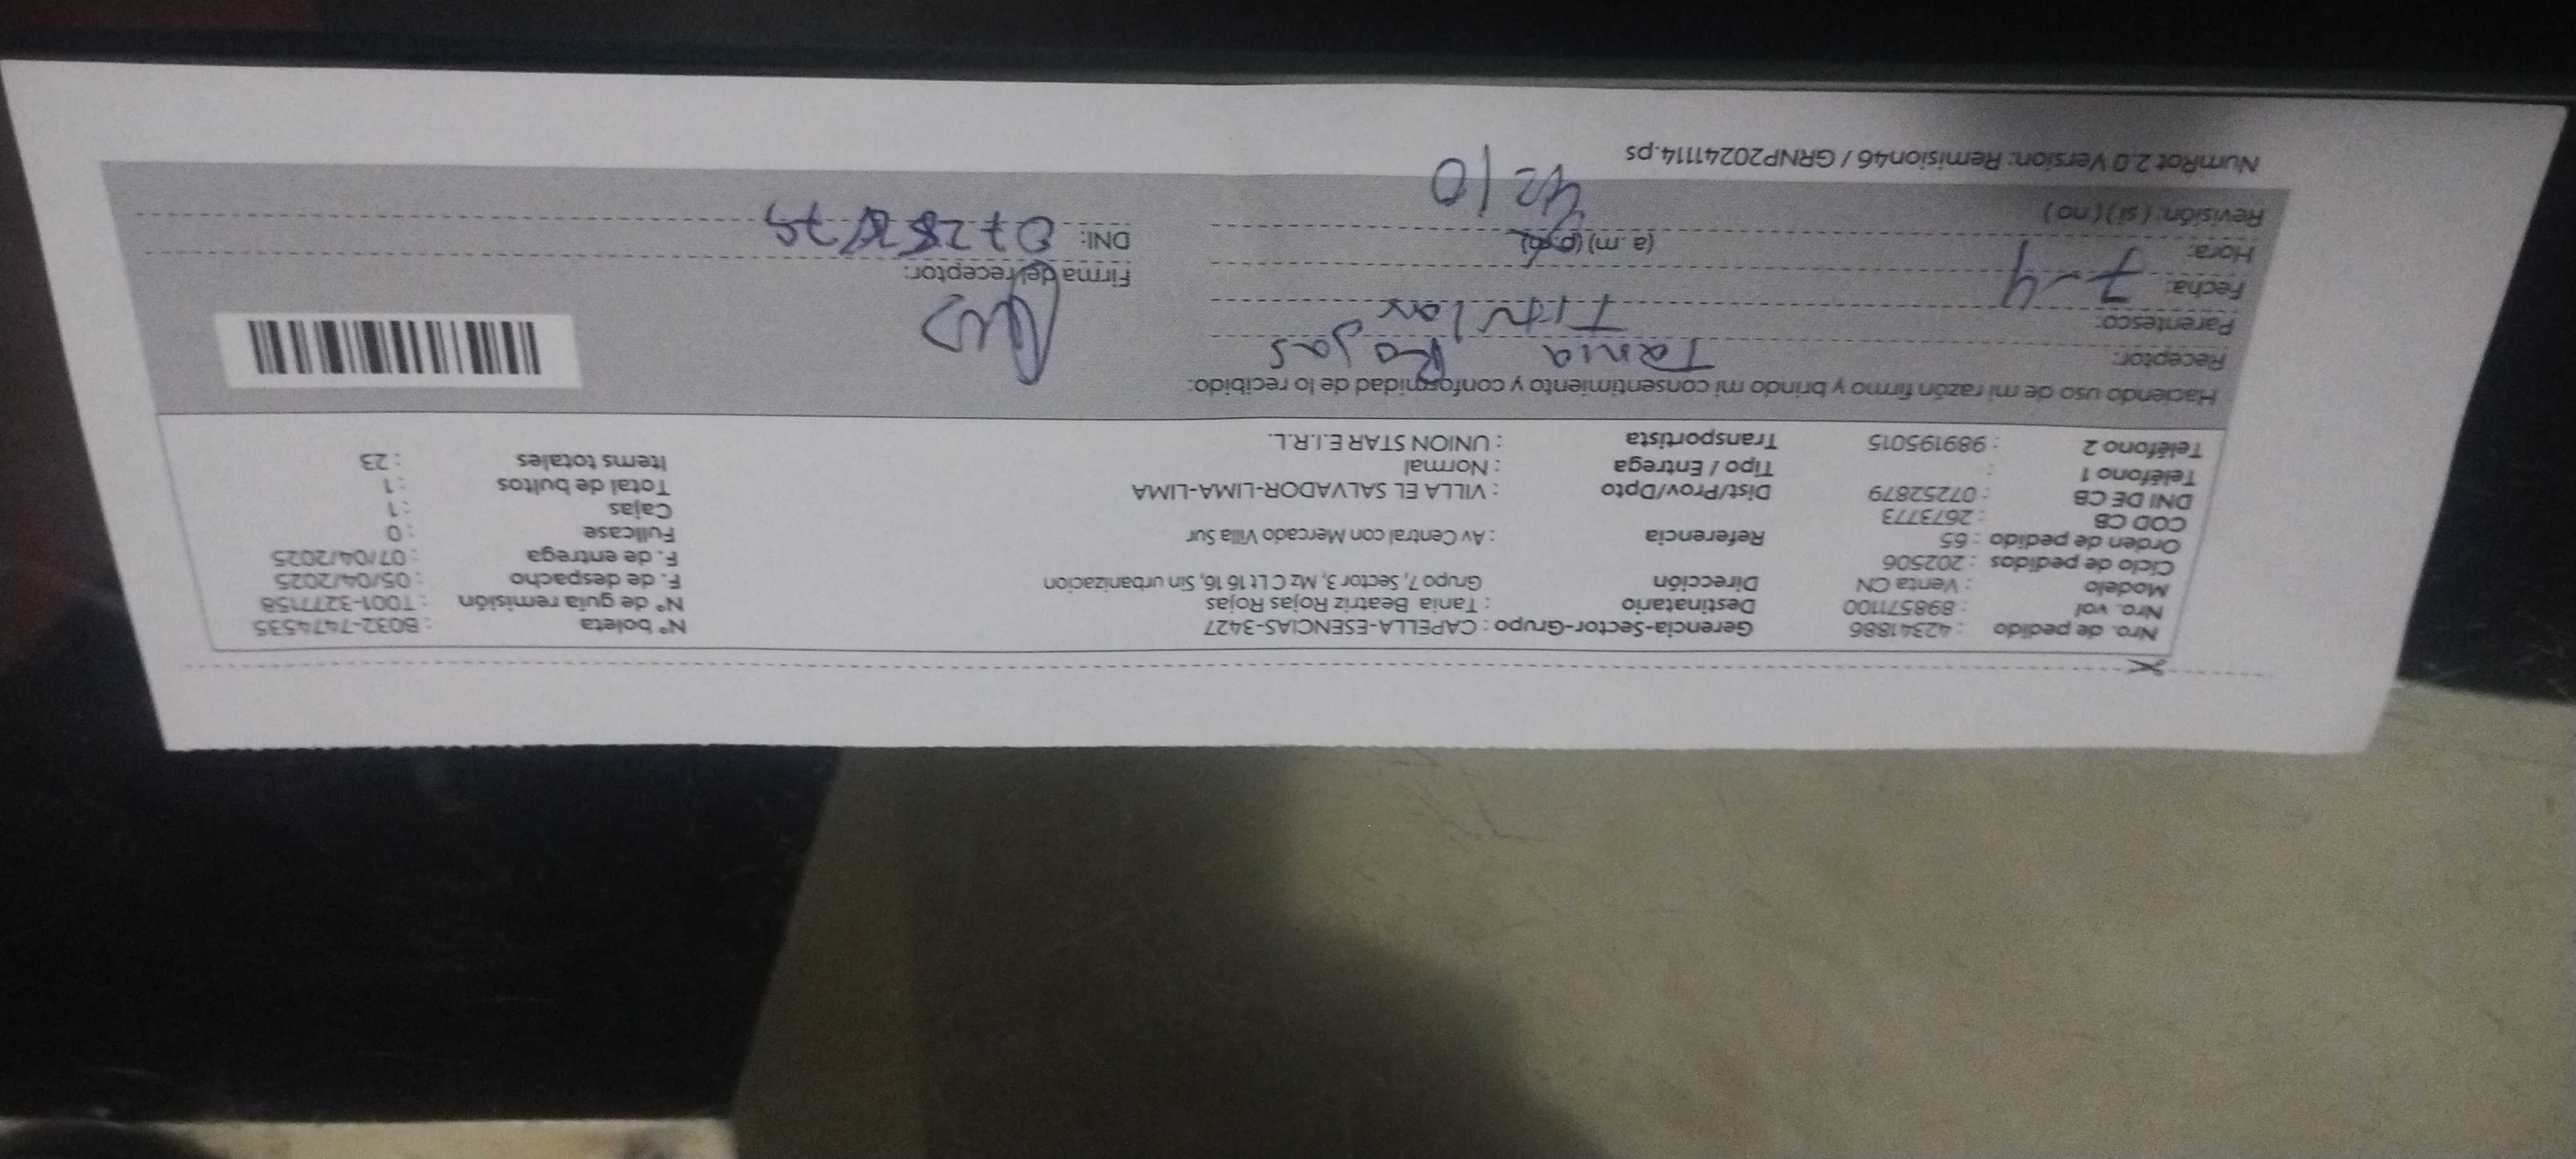 Nro. de pedido : 42341886 Gerencia-Sector-Grupo : CAPELLA-ESENCIAS-3427 N° boleta : B032-7474535
Nro. vol : 898571100 Destinatario : Tania Beatriz Rojas Rojas N° de guía remisión : T001-3277158
Modelo : Venta CN Dirección Grupo 7, Sector 3, Mz C Lt 16 16, Sin urbanizacion F. de despacho : 05/04/2025
Ciclo de pedidos : 202506 F. de entrega : 07/04/2025
Orden de pedido : 65 Referencia : Av Central con Mercado Villa Sur Fullcase : 0
COD CB : 2673773 Cajas : 1
DNI DE CB : 07252879 Dist/Prov/Dpto : VILLA EL SALVADOR-LIMA-LIMA Total de bultos : 1
Teléfono 1 : Tipo / Entrega : Normal Items totales : 23
Teléfono 2 : 989195015 Transportista : UNION STAR E.I.R.L.
Haciendo uso de mi razón firmo y brindo mi consentimiento y conformidad de lo recibido:
Receptor: Tania Rojas
Parentesco: Titular
Fecha: 7-4 Firma del receptor:
Hora: (a.m) (p.m) DNI:
Revisión: (si) (no) 4:10
NumRot 2.0 Version: Remision46 / GRNP20241114.ps